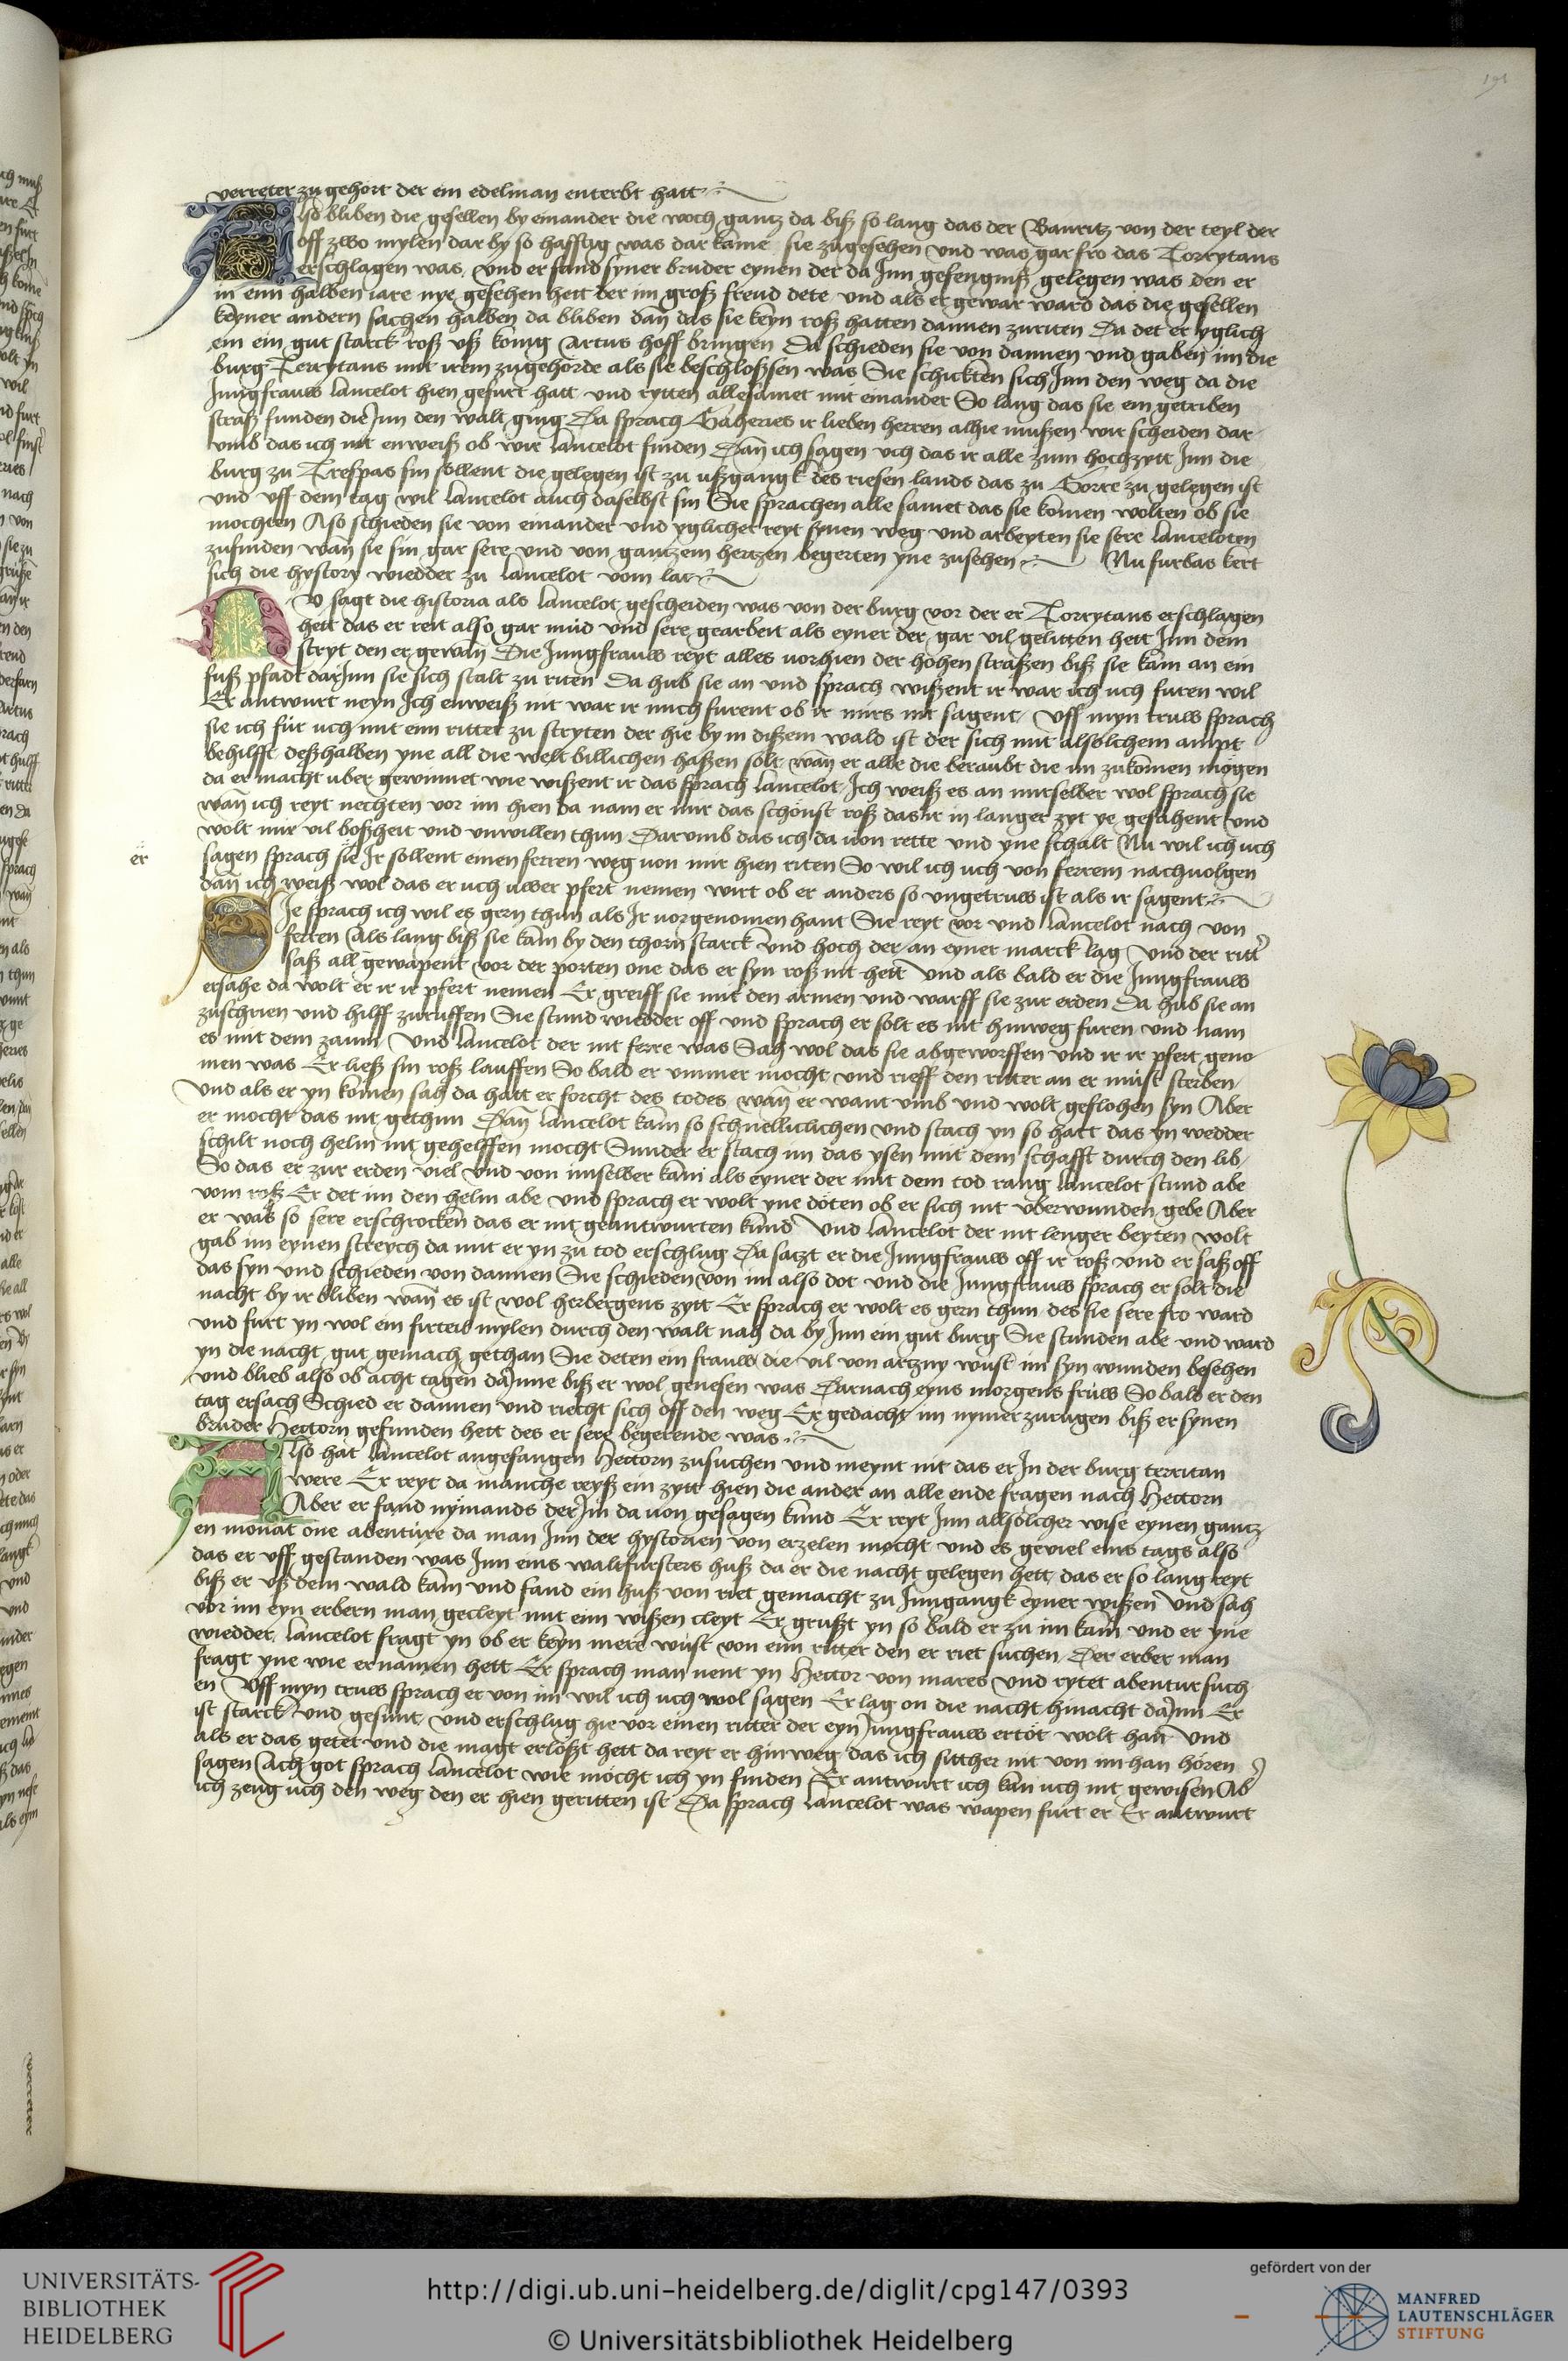 191
verreter zu gehört der ein edelman enterbt hatt
Also bliben die gesellen by einander die woch gantz da biß so lang das der Banritz von der teyl der
off zwo mylen dar by so hafftig was dar kame sie zugesehen und was gar fro das Torrytans
erschlagen was und er fand syner bruder eynen der da Inn gefengniß gelegen was den er
in einn halben iare nye gesehen hett der im groß freud dete und als er gewar ward das die gesellen
keyner andern sachen halben da bliben dañ das sie keyn roß hatten dannen zuriten Da det er yglich
em ein gut starck roß uß konig Artus hoff bringen Da schieden sie von dannen und gaben im die
burg Terrytans mit irem zugehorde als sie beschloßsen was Sie schickten sich Inn den weg da die
Jungfrauw lancelot hien gefurt hatt und rytten allesamet mit einander So lang das sie ein getriben
straß funden die Inn den walt ging Da sprach Gaheries ir lieben herren alhie mußen wir scheiden dar
umb das ich nit enweiß ob wir lancelot finden Dañ ich sagen uch das ir alle zum hochzytt Inn die
burg zu Trespas sin sollent die gelegen ist zu ußgangk des riesen lands das zu Gorre zu gelegen ist
und uff dem tag wil lancelot auch daselbst sin Sie sprachen alle samet das sie komen wolten ob sie
mochten Aso schieden sie von einander und yglicher reyt synen weg und arbeyten sie sere lanceloten
zufinden wañ sie sin gar sere und von gantzem hertzen begerten yne zusehen Nu furbas kert
sich die hystory wiedder zu lancelot vom lac
NV sagt die historia als lancelot gescheiden was von der burg vor der er Torrytans erschlagen
hett das er reit also gar müd und sere gearbeit als eyner der gar vil gelitten hett Inn dem
stryt den er gewañ Die Jungfrauw reyt alles vorhien der hohen straßen biß sie kam an ein
fuß pfadt dar Inn sie sich stalt zu riten Da hub sie an und sprach wißent ir war ich uch furen wil
Er antwurt neyn Ich enweiß nit war ir mich furent ob ir mirs nit sagent Uff myn truw sprach
sie ich für uch mit einn ritter zu stryten der hie by in dißem wald ist der sich mit alsolchem ampt
behilfft deßhalben yne all die welt billichen haßen solt wañ er alle die beraubt die im zukomen mogen
da er macht uber gewinnet wie wißent ir das sprach lancelot Ich weiß es an mirselber wol sprach sie
wañ ich reyt nechten vor im hien da nam er mir das schönst roß das ir in langer zyt ye gesahent und
wolt mir vil boßheit und unwillen thun Darumb das ich da von rette und yne schalt Nu wil ich uch
er
sagen sprach sie Ir sollent einen ferren weg von mir hien riten So wil ich uch von ferrem nachuolgen
dañ ich weiß wol das er uch uwer pfert nemen wirt ob er anders so ungetruw ist als ir sagent
Sie sprach ich wil es gern thun als Ir vorgenomen hant Sie reyt vor und lancelot nach von
ferren Als lang biß sie kam by den thorn starck und hoch der an eyner marck lag Und der ritt
saß all gewapent vor der porten one das er syn roß nit hett Und als bald er die Jungfrauw
ersahe da wolt er ir ir pfert nemen Er greiff sie mit den armen und warff sie zur erden Da hub sie an
zuschrien und hilff zuruffen Sie stund wiedder off und sprach er solt es nit hinweg furen und nam
es mit dem zaum Und lancelot der nit ferre was Sah wol das sie abgeworffen und ir ir pfert geno
men was Er ließ sin roß lauffen So bald er ummer mocht und rieff den ritter an er müst sterben
Und als er yn komen sah da hatt er forcht des todes wañ er want umb und wolt geflohen syn Aber
er mocht das nit gethun Dañ lancelot kam so schnelliclichen und stach yn so hart das yn wedder
schilt noch helm nit gehelffen mocht Sunder er stach im das ysen mit dem schafft durch den lib
So das er zur erden viel Und von imselber kam als eyner der mit dem tod rang lancelot stund abe
vom roß Er det im den helm abe und sprach er wolt yne döten ob er sich nit uberwunden gebe Aber
er was so sere erschrocken das er nit geantwurten kund Und lancelot der nit lenger beyten wolt
gab im eynen streych da mit er yn zu tod erschlug Da satzt er die Jungfrauw off ir roß und er saß off
das syn und schieden von dannen Sie schieden von im also dot und die Jungfrauw sprach er solt die
nacht by ir bliben wañ es ist wol herbergens zytt Er sprach er wolt es gern thun des sie sere fro ward
und furt yn wol ein firteil mylen durch den walt nah da by Inn ein gut burg Sie stunden abe und ward
yn die nacht gut gemach gethan Sie deten ein frauw die vil von artzny wust im syn wunden besehen
und blieb also ob acht tagen da Inne biß er wol genesen was Darnach eyns morgens früw So bald er den
tag ersach Schied er dannen und riecht sich off den weg Er gedacht im nymer zurugen biß er synen
bruder Hectorn gefunden hett des er sere begerende was
Also hat lancelot angefangen Hectorn zusuchen und meynt nit das er In der burg territan
were Er reyt da manche reyß ein zytt hien die ander an alle ende fragen nach Hectorn
Aber er fand nymands der Im da von gesagen kund Er reyt Inn allsolcher wise eynen gantz
en monat one abentüre da man Inn der hystorien von erzelen mocht und es geviel eins tags also
das er uff gestanden was Inn eins waltfursters huß da er die nacht gelegen hett das er so lang reyt
biß er uß dem wald kam und fand ein huß von riet gemacht zu Inngangk eyner wißen Und sah
vor im eyn erbern man gecleyt mit einn wißen cleyt Er grußt yn so bald er zu im kam und er yne
wiedder lancelot fragt yn ob er keyn mere wüst von einn ritter den er riet suchen Der erber man
fragt yne wie er namen hett Er sprach man nent yn Hector von mares und rytet abentur such
en Uff myn truw sprach er von im wil ich uch wol sagen Er lag on die nacht hinacht da Inn Er
ist starck und gesunt und erschlug hie vor einen ritter der eyn Jungfrauw ertöt wolt han Und
als er das getet und die magt erlößt hett da reyt er hinweg das ich sitther nit von im han hören
sagen Ach got sprach lancelot wie möcht ich yn finden Er antwurt ich kan uch nit gewisen Ab
ich zeug uch den weg den er hien geritten ist Da sprach lancelot was wapen furt er Er antwurt
UNIVERSITÄTS-
BIBLIOTHEK
HEIDELBERG
http://digi.ub.uni-heidelberg.de/diglit/cpg147/0393
© Universitätsbibliothek Heidelberg
gefördert von der
MANFRED
LAUTENSCHLÄGER
STIFTUNG